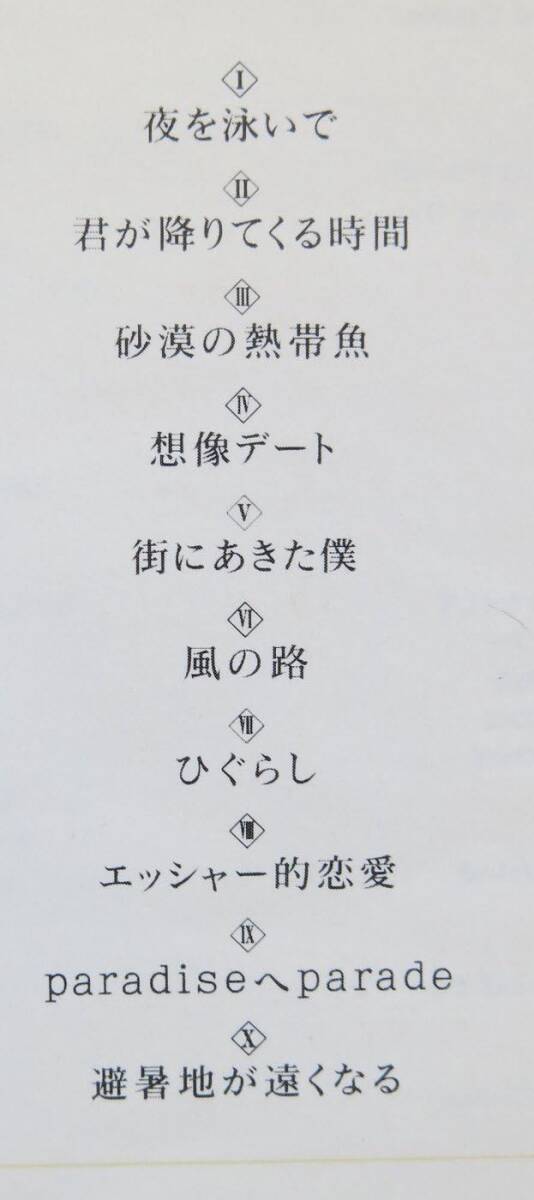 I
夜を泳いで
II
君が降りてくる時間
III
砂漠の熱帯魚
IV
想像デート
V
街にあきた僕
VI
風の路
VII
ひぐらし
VIII
エッシャー的恋愛
IX
paradiseへparade
X
避暑地が遠くなる